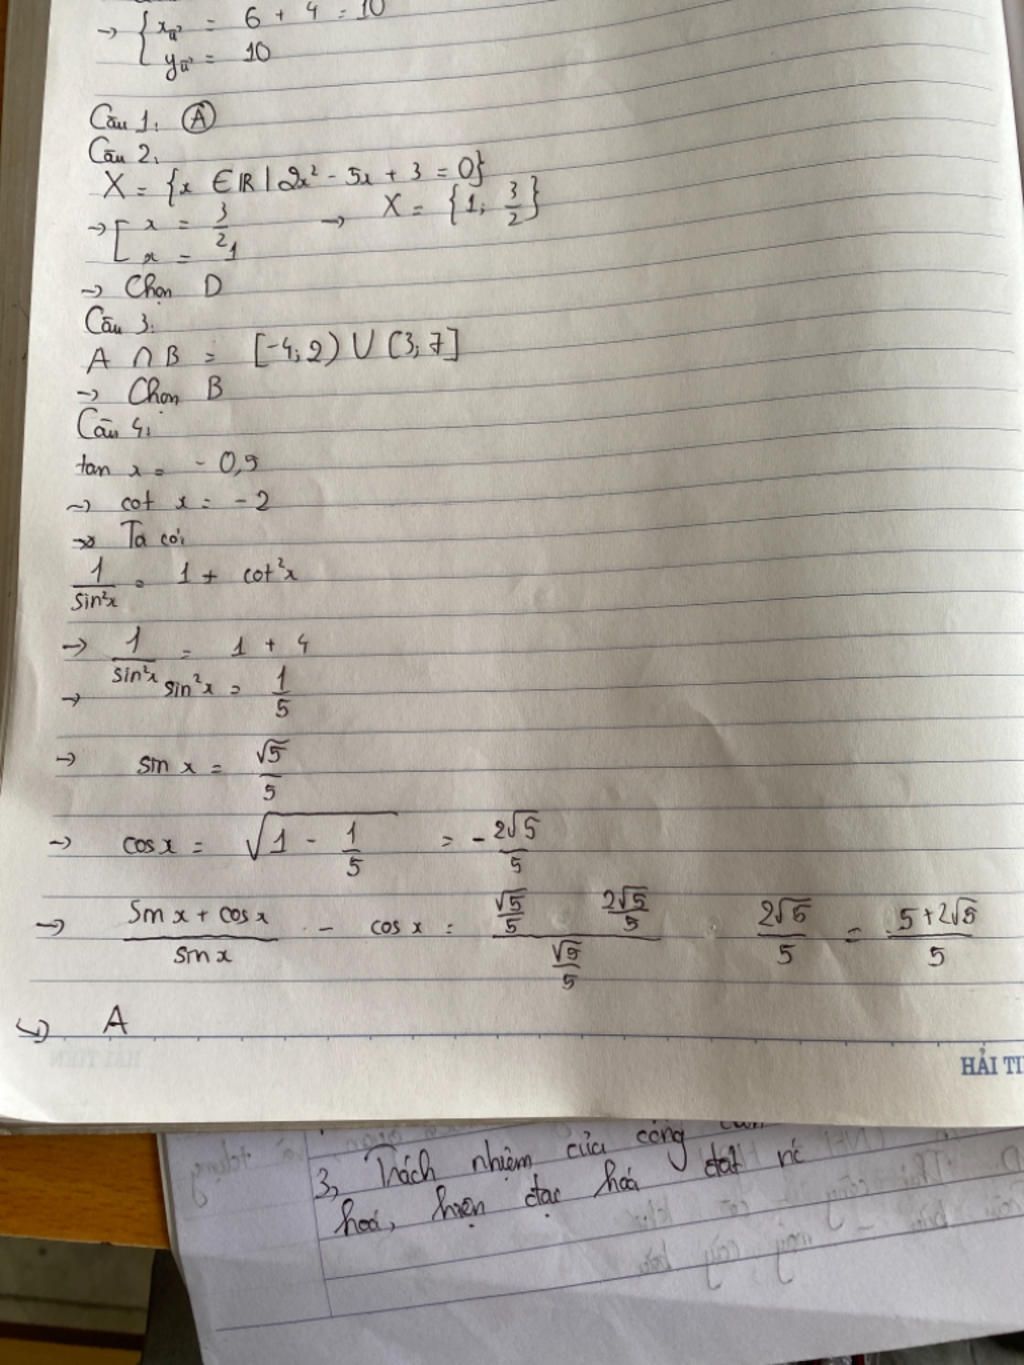 → { x_ū = 6 + 4 = 10
y_ū = 10
Câu 1: Ⓐ
Câu 2:
X = {x ∈ ℝ | 2x² - 5x + 3 = 0}
→ [ x = 3/2 → X = {1; 3/2}
x = 1
→ Chọn D
Câu 3:
A ∩ B = [-4; 2) ∪ (3; 7]
→ Chọn B
Câu 4:
tan x =
→ cot x = -2
→ Ta có:
1/sin²x = 1 + cot²x
→ 1/sin²x = 1 + 4
→ sin²x = 1/5
→ sin x = √5/5
→ cos x = √(1 - 1/5) = - 2√5/5
→ (sin x + cos x)/sin x - cos x = (√5/5 2√5/5)/(√5/5) 2√5/5 = (5+2√5)/5
↪ A
HẢI TI
3, Trách nhiệm của công
hoá, hiện đại hoá đất